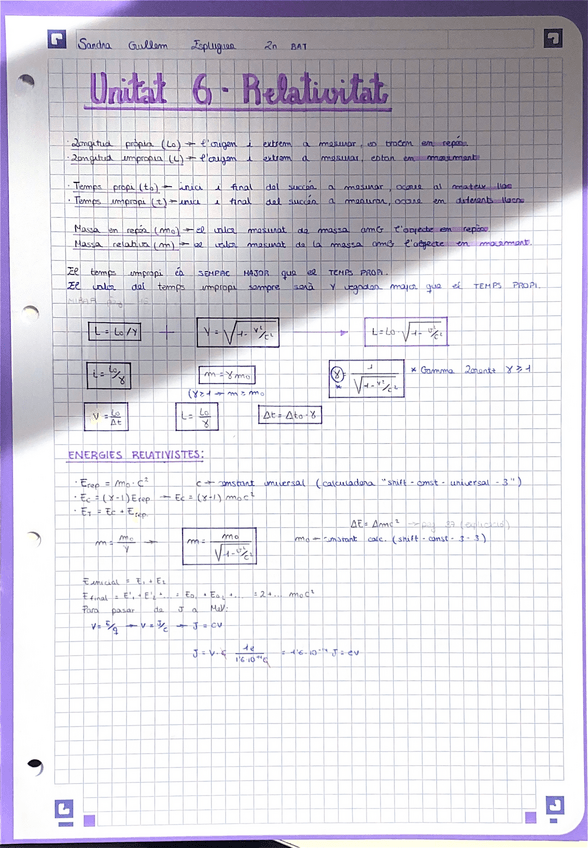 Sandra Guillem Esplugues 2n BAT
Unitat 6 - Relativitat
· Longitud pròpia (L₀) → l'origen i extrem a mesurar, es troben en repòs.
· Longitud impròpia (L) → l'origen i extrem a mesurar, estan en moviment
· Temps propi (t₀) → inici i final del succés a mesurar, ocorre al mateix lloc
· Temps impropi (t) → inici i final del succés a mesurar, ocorre en diferents llocs
Massa en repòs (m₀) → el valor mesurat de massa amb l'objecte en repòs.
Massa relativa (m) → el valor mesurat de la massa amb l'objecte en moviment.
El temps impropi és SEMPRE MAJOR que el TEMPS PROPI.
El valor del temps impropi sempre serà γ vegades major que el TEMPS PROPI.
L = L₀/γ + γ = √(1 - v²/c²) → L = L₀ · √(1 - v²/c²)
L = L₀/γ m = γ m₀ γ = 1/√(1 - v²/c²) * Gamma γ ≥ 1
(γ ≥ 1 → m ≥ m₀
V = L₀/Δt L = L₀/γ Δt = Δt₀ · γ
ENERGIES RELATIVISTES:
· E rep = m₀ · c² c → constant universal (calculadora "shift - const - universal - 3")
· Ec = (γ-1) E rep → Ec = (γ-1) m₀c²
· ET = Ec + E rep
ΔE = Δmc²
m = m₀/γ → m = m₀/√(1 - v²/c²) m₀ → constant calc. (shift - const - 3 - 3)
E inicial = E₁ + E₂
E final = E'₁ + E'₂ + ... = E₀₁ + E₀₂ + ... = 2 + ... m₀c²
Para pasar de J a MeV:
V = E/q → V = J/C → J = CV
J = V · C 1e/1'6·10⁻¹⁹C = 1'6·10⁻¹⁹ J = eV